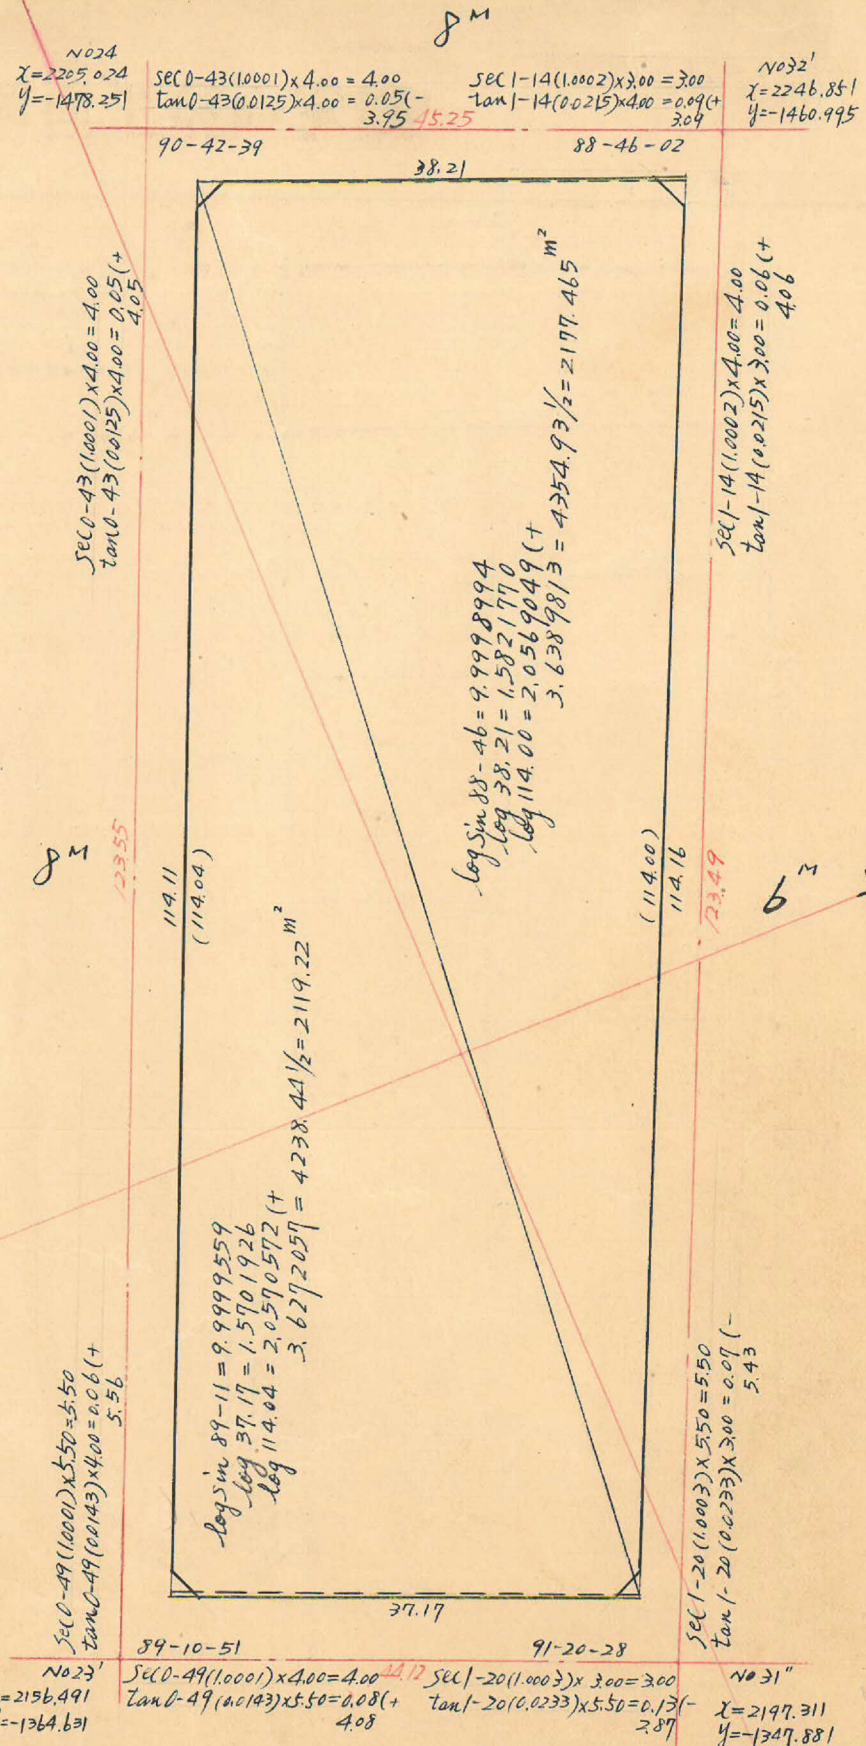 8M
No24
X=2205.024
y=-1478.251
sec0-43(1.0001)x4.00=4.00
tan0-43(0.0125)x4.00=0.05(-
3.95
45.25
sec1-14(1.0002)x3.00=3.00
tan1-14(0.0215)x4.00=0.09(+
3.09
No32'
X=2246.851
y=-1460.995
90-42-39
88-46-02
38.21
sec0-43(1.0001)x4.00=4.00
tan0-43(0.0125)x4.00=0.05(+
4.05
sec1-14(1.0002)x4.00=4.00
tan1-14(0.0215)x3.00=0.06(+
4.06
logsin88-46=9.9998994
log38.21=1.5821770
log114.00=2.0569049(+
3.6389813=4354.93 1/2=2177.465m²
8M
123.55
114.11
(114.04)
(114.00)
114.16
123.49
6M
logsin89-11=9.9999559
log37.17=1.5701926
log114.04=2.0570572(+
3.6272057=4238.44 1/2=2119.22m²
sec0-49(1.0001)x5.50=5.50
tan0-49(0.0143)x4.00=0.06(+
5.56
sec1-20(1.0003)x5.50=5.50
tan1-20(0.0233)x3.00=0.07(-
5.43
37.17
89-10-51
91-20-28
No23'
=2156.491
=-1364.631
sec0-49(1.0001)x4.00=4.00
tan0-49(0.0143)x5.50=0.08(+
4.08
44.12
sec1-20(1.0003)x3.00=3.00
tan1-20(0.0233)x5.50=0.13(-
2.87
No31"
X=2197.311
y=-1347.881